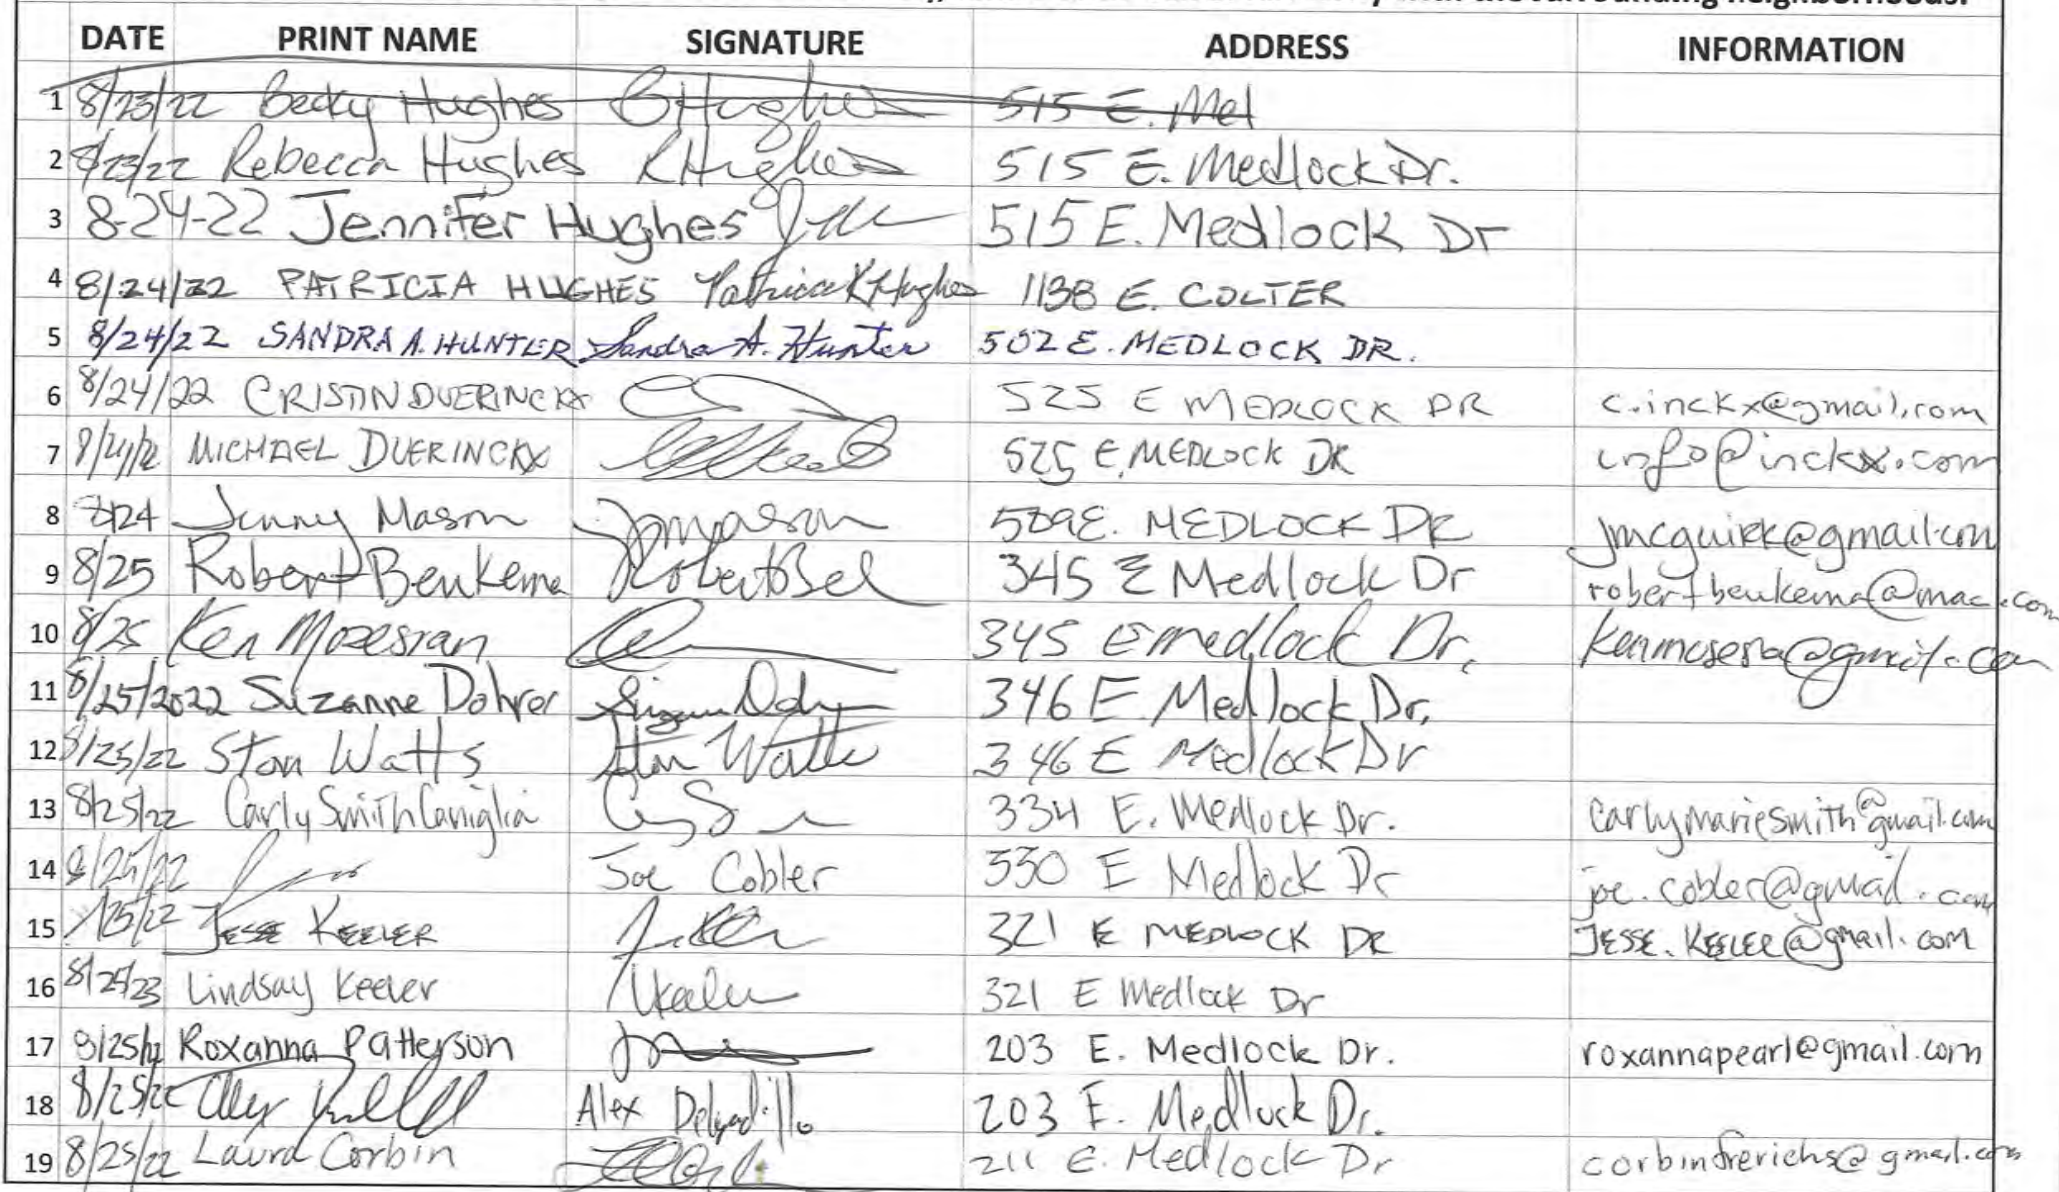 DATE PRINT NAME SIGNATURE ADDRESS INFORMATION
1 8/23/22 Becky Hughes BHughes 515 E. Mel
2 8/23/22 Rebecca Hughes RHughes 515 E. Medlock Dr.
3 8-24-22 Jennifer Hughes 515 E. Medlock Dr
4 8/24/22 PATRICIA HUGHES Patricia K Hughes 1138 E. COLTER
5 8/24/22 SANDRA A. HUNTER Sandra A. Hunter 502 E. MEDLOCK DR.
6 8/24/22 CRISTIN DUERINCKX 525 E MEDLOCK DR c.inckx@gmail.com
7 MICHAEL DUERINCKX 525 E. MEDLOCK DR info@inckx.com
8 8/24 Jenny Mason Jmason 509 E. MEDLOCK DR jmcguirk@gmail.com
9 8/25 Robert Beukema 345 E Medlock Dr robertbeukema@mac.com
10 8/25 Ken Mosesian 345 E medlock Dr.
11 8/25/2022 Suzanne Dohrer 346 E. Medlock Dr.
12 8/25/22 Stan Watts Stan Watts 346 E Medlock Dr
13 8/25/22 Carly Smith Caniglia 334 E. Medlock Dr. carlymariesmith@gmail.com
14 8/25/22 Joe Cobler 330 E Medlock Dr joe.cobler@gmail.com
15 /25/22 JESSE KEELER 321 E MEDLOCK DR JESSE.KEELER@gmail.com
16 8/25/23 Lindsay Keeler LKeeler 321 E Medlock Dr
17 8/25/22 Roxanna Patterson 203 E. Medlock Dr. roxannapearl@gmail.com
18 8/25/22 Alex Delgadillo 203 E. Medlock Dr.
19 8/25/22 Laura Corbin 211 E. Medlock Dr corbinfrerichs@gmail.com